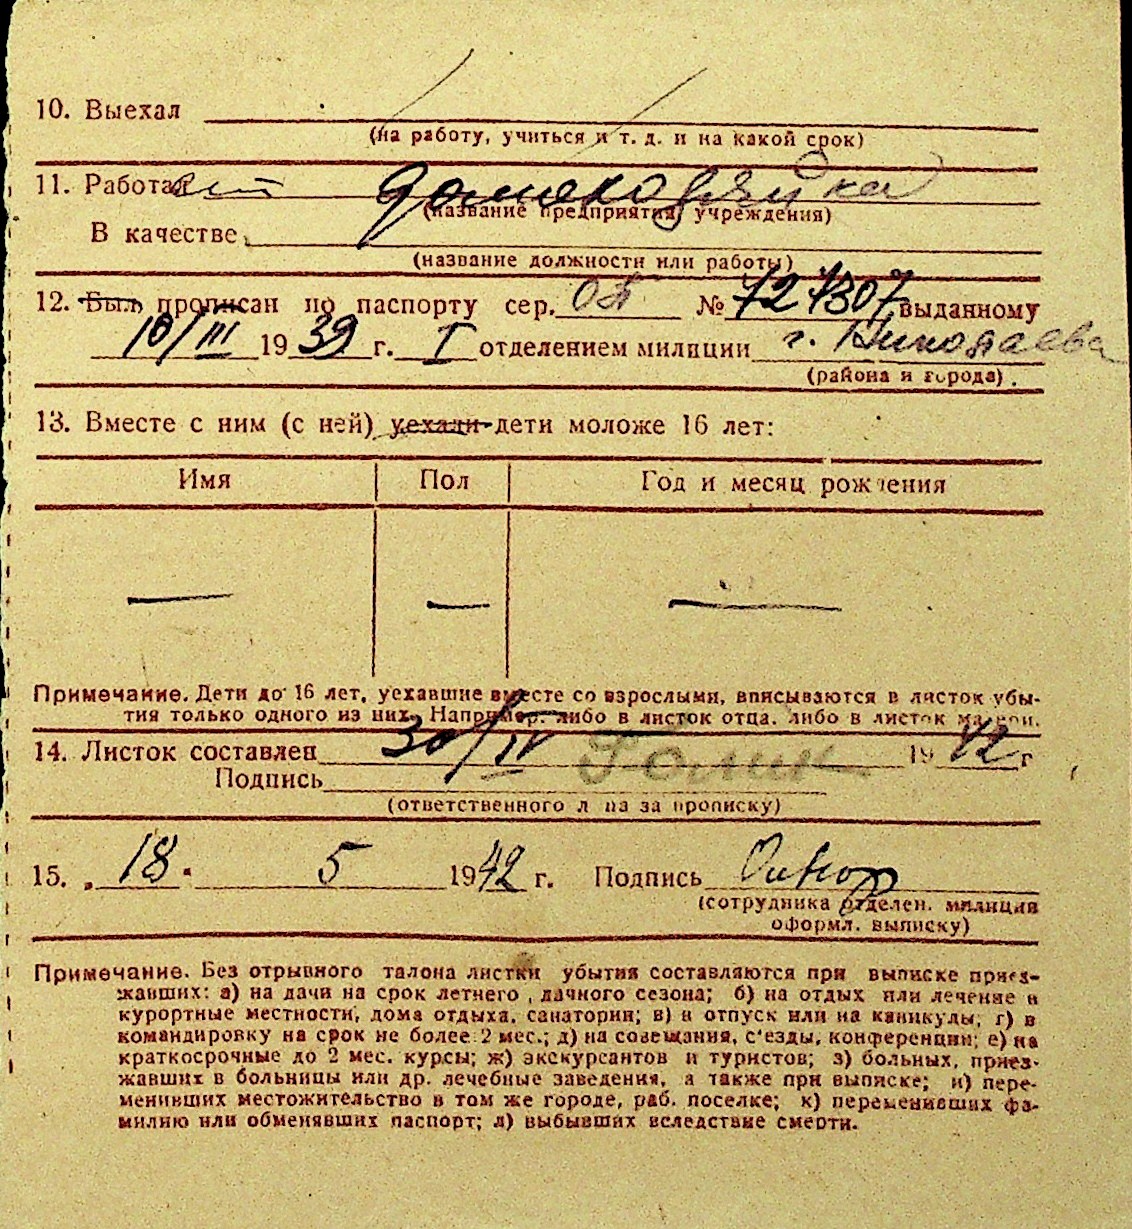 10. Выехал
(на работу, учиться и т. д. и на какой срок)
11. Работает домохозяйка
(название предприятия, учреждения)
В качестве
(название должности или работы)
12. Был прописан по паспорту сер. № 727307 выданному
10/III 1939 г. I отделением милиции г. Николаева
(района и города).
13. Вместе с ним (с ней) уехали дети моложе 16 лет:
Имя Пол Год и месяц рождения
— — —
Примечание. Дети до 16 лет, уехавшие вместе со взрослыми, вписываются в листок убы-
тия только одного из них. Например: либо в листок отца, либо в листок матери.
14. Листок составлен 30/IV 1942 г
Подпись
(ответственного лица за прописку)
15. 18. 5 1942 г. Подпись
(сотрудника отделен. милиции
оформл. выписку)
Примечание. Без отрывного талона листки убытия составляются при выписке приез-
жавших: а) на дачи на срок летнего, дачного сезона; б) на отдых или лечение в
курортные местности, дома отдыха, санатории; в) в отпуск или на каникулы; г) в
командировку на срок не более 2 мес.; д) на совещания, с'езды, конференции; е) на
краткосрочные до 2 мес. курсы; ж) экскурсантов и туристов; з) больных, приез-
жавших в больницы или др. лечебные заведения, а также при выписке; и) пере-
менивших местожительство в том же городе, раб. поселке; к) переменивших фа-
милию или обменявших паспорт; л) выбывших вследствие смерти.